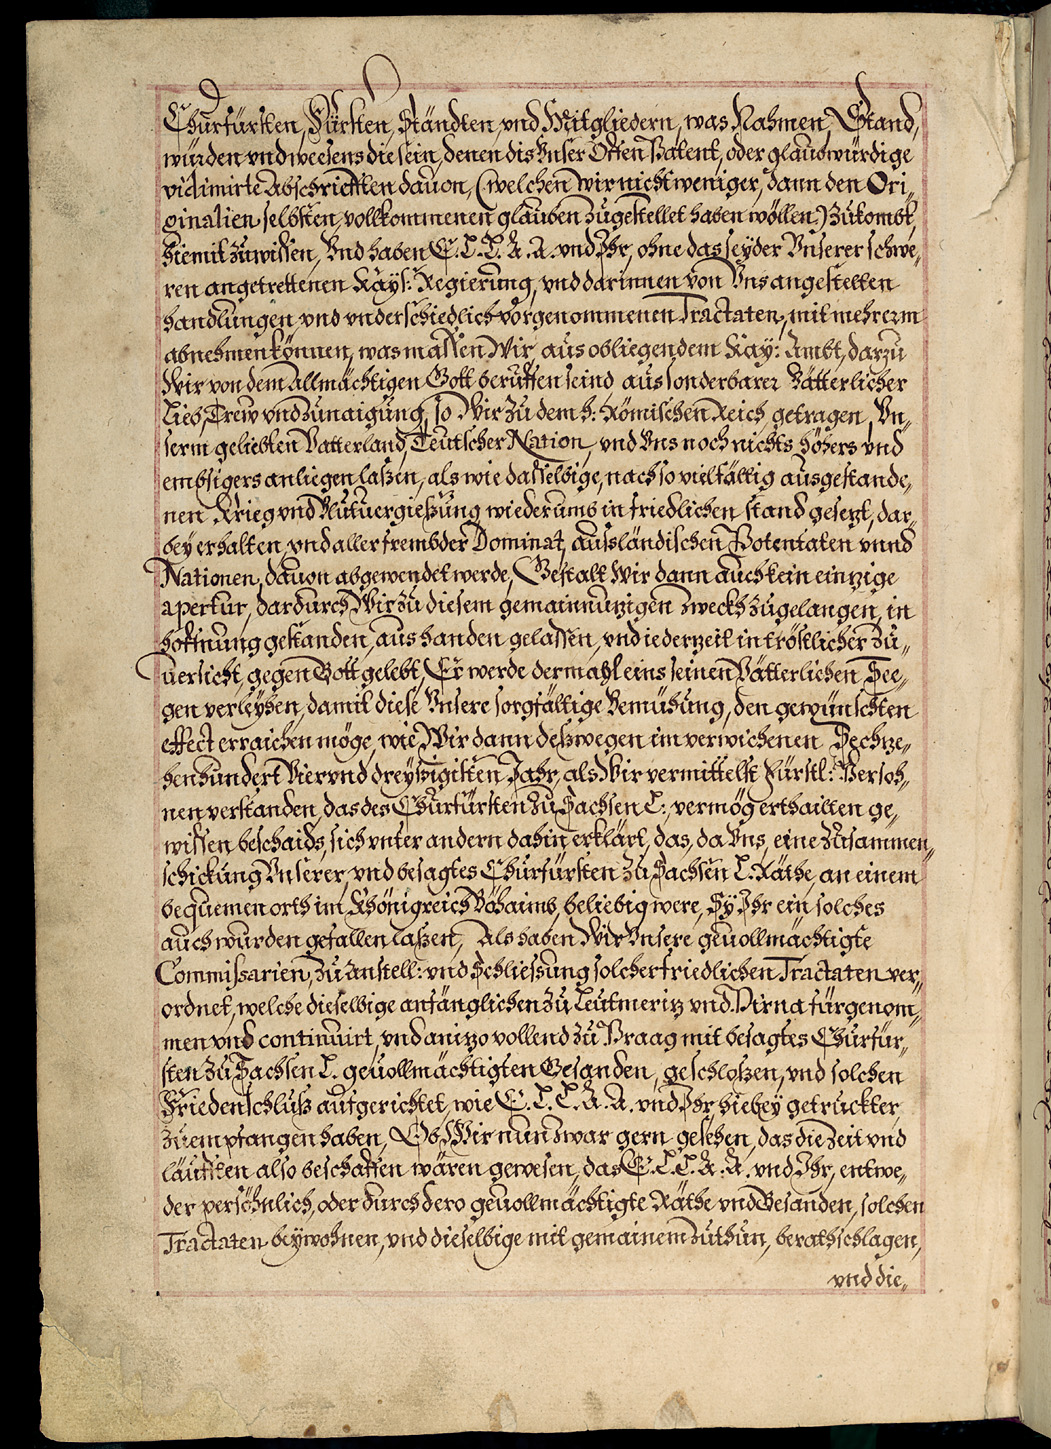 Churfürsten, Fürsten, Ständten, vnd Mitgliedern, was Nahmen, Stand,
würden vnd weesens die sein, denen dis Vnser Offen Patent, oder glaubwürdige
vidimirte Abschrifften dauon, (welchen wir nicht weniger, dann den Ori„
ginalien selbsten, vollkommenen glauben zugestellet haben wöllen) zukombt,
hiemit zuwissen, Vnd haben E. L. L. A. A. vnd Ihr, ohne das seyder Vnserer schwe„
ren angetrettenen Kays: Regierung, vnd darinnen von Vns angestelten
handlungen, vnd vnderschiedlich vorgenommenen Tractaten, mit mehrerm
abnehmen können, was massen Wir aus obliegendem Kay: Ambt, darzu
Wir von dem Allmächtigen Gott beruffen seind, aus sonderbarer Vätterlicher
Lieb, Trew vnd zunaigung, so Wir zu dem h: Römischen Reich, getragen, Vn„
serm geliebten Vatterland, Teutscher Nation, vnd Vns noch nichts höhers vnd
embsigers anliegen laßen, als wie dasselbige, nach so vielfältig ausgestande„
nen Krieg vnd Blutuergießung wiederumb in friedlichen stand gesezt, dar„
bey erhalten, vnd aller frembder Dominat, aussländischen Potentaten vnnd
Nationen, dauon abgewendet werde, Gestalt Wir dann auch kein einzige
apertur, dardurch Wir zu diesem gemainnuzigen zweckh zugelangen, in
hoffnung gestanden, aus handen gelassen, vnd iederzeit in tröstlicher zu„
uersicht, gegen Gott gelebt, Er werde dermahl eins seinen Vätterlichen See„
gen verleyhen, damit diese Vnsere sorgfältige Bemühung, den gewünschten
effect erraichen möge, wie Wir dann deßwegen im verwichenen Sechze„
hen hundert Vier vnd dreyßigisten Jahr, als Wir vermittelst Fürstl: Persoh„
nen verstanden, das des Churfürsten zu Sachsen L:, vermög erthailten ge„
wissen beschaids, sich vnter andern dahin erklärt, das, da Vns, eine zusammen„
schickung Vnserer, vnd besagtes Churfürsten zu Sachsen L. Räthe, an einem
bequemen orth im Khönigreich Böhaimb, beliebig were, Sy Ihr ein solches
auch wurden gefallen laßen, Als haben Wir Vnsere geuollmächtigte
Commissarien, zu anstell: vnd Schliessung solcher friedlichen Tractaten ver„
ordnet, welche dieselbige anfänglichen zu Leutmeriz vnd Pirna fürgenom„
men vnd continuirt, vnd anizo vollend zu Praag mit besagtes Churfür„
sten zu Sachsen L. geuollmächtigten Gesanden, geschloßen, vnd solchen
Friedenschluß aufgerichtet, wie E. L. L. A. A. vnd Ihr, hiebey getruckter
zuempfangen haben, Ob Wir nun zwar gern gesehen, das die zeit vnd
läufften also beschaffen wären gewesen, das E. L. L. A. A. vnd Ihr, entwe„
der persöhnlich, oder durch dero geuollmächtigte Räthe vnd Gesanden, solchen
Tractaten beywohnen, vnd dieselbige mit gemainem zuthun, berathschlagen,
vnd die„